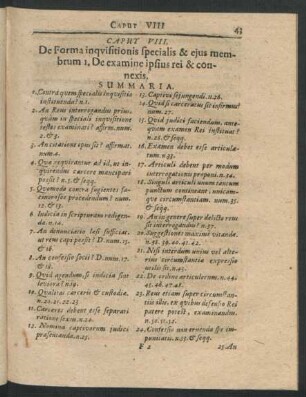 CAPUT VIII
43
CAPUT VIII.
De Forma inqvisitionis specialis & ejus mem-
brum 1, De examine ipsius rei & con-
nexis,
SUMMARIA.
1. Contra quem specialis inqvisitio
instituenda? n. 1.
2. An Reus interrogandus prius-
quam in specialis inqvisitione
testes examinati? affirm. num.
2. & 3.
3. An citatione ipsi sit? affirmat.
num. 4.
4. Qua requirantur ad id, ut in-
quirendus carcere mancipari
possit? n. 5. & seqq.
5. Quomodo contra fugientes fa-
cinorosos procedendum? num.
11. &
6. Indicia in scripturam redigen-
da. n. 14.
7. An denunciatio læsi sufficiat
ut reus capi possit? D. num. 15.
& 16.
8. An confessio socii? D. num. 17.
& 18.
9. Quid agendum si indicia sint
leviora? n. 19.
10. Qualitas carceris & custodiæ.
n. 20. 21. 22. 23
11. Carceres debent esse separati
ratione sexus. n. 24.
12. Nomina captivorum judici
præsentanda. n. 25.
13. Captivi sejungendi. n. 26.
14. Quid si carceratus sit infirmus?
num. 27.
15. Quid judici faciendum, ante-
quam examen Rei instituat?
n. 28.
16. Examen debet esse articula-
tum.
17. Articuli debent per modum
interrogationis proponi. n. 34.
18. Singuli articuli unum tantum
punctum contineant unicam-
que circumstantiam. num. 35.
&
19. An in genere super delicto reus
sit interrogandus? n. 37.
20. Suggestiones maximè vitandæ.
n. 38. 39. 40. 41. 42.
21. Nisi interdum unius vel alte-
rius circumstantiæ expressio
utilis sit, n. 43.
22. De ordine articulorum. n. 44.
45. 46. 47. 48.
23. Reus etiam super circumstan-
tiis illis, ex quibus defensio Rei
patere potest, examinandum.
n. 50. 51. 52.
24. Confessio non eruenda spe im-
punitatis. n. 53. & seqq.
F 2
25 An